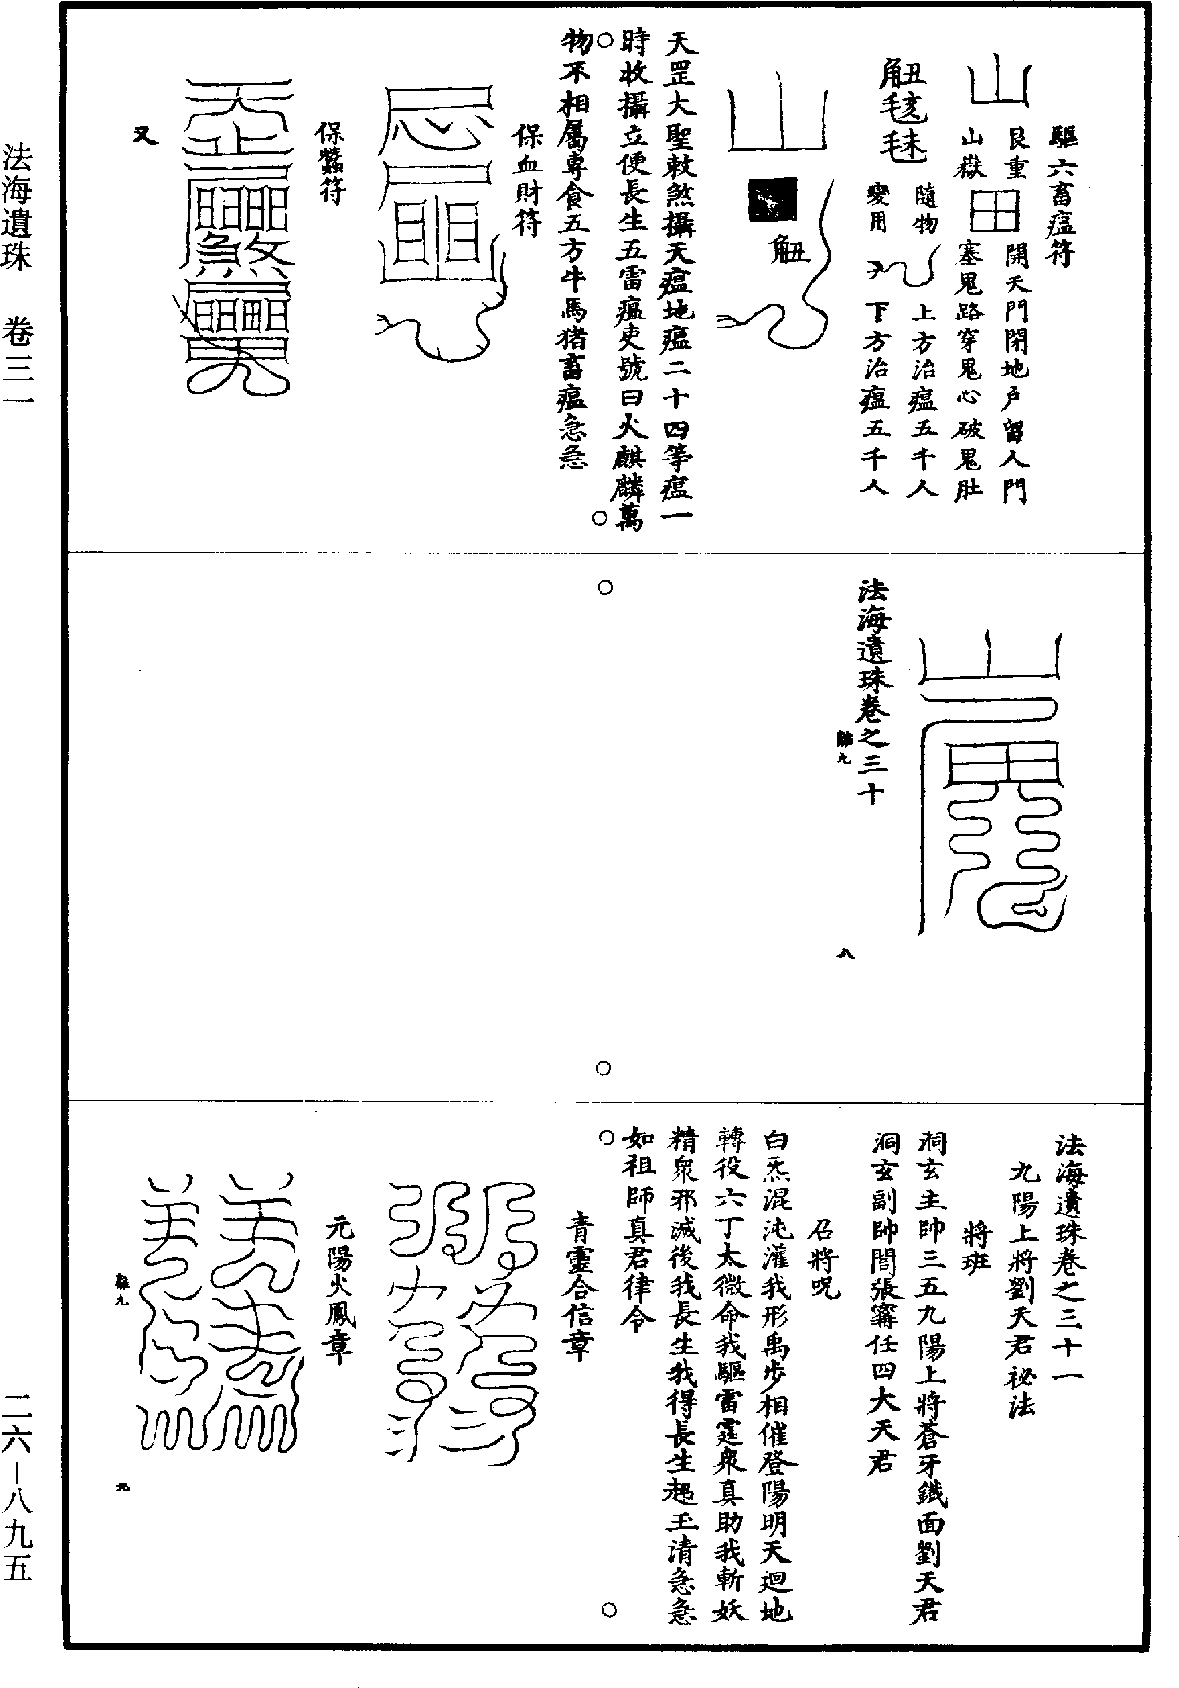 驅六畜瘟符
艮重
山嶽
開天門閉地戶留人門
塞鬼路穿鬼心破鬼肚
隨物
變用
上方治瘟五千人
下方治瘟五千人
天罡大聖敕煞攝天瘟地瘟二十四等瘟一
時收攝立便長生五雷瘟吏號曰火麒麟萬
物不相屬專食五方牛馬猪畜瘟急急
保血財符
保蠶符
又
法海遺珠卷之三十
八
法海遺珠卷之三十一
九陽上將劉天君祕法
將班
洞玄主帥三五九陽上將蒼牙鐵面劉天君
洞玄副帥閻張甯任四大天君
召將呪
白炁混沌灌我形禹步相催登陽明天迴地
轉役六丁太微命我驅雷霆衆真助我斬妖
精衆邪滅後我長生我得長生超玉清急急
如祖師真君律令
青靈合信章
元陽火鳳章
法海遺珠 卷三一
二六－八九五